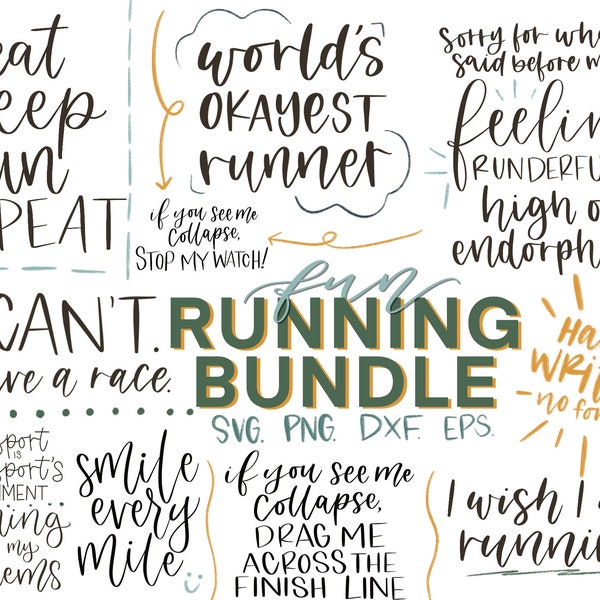 eat
eep
un
PEAT
world's
OKAYEST
runner
if you see me
collapse,
STOP MY WATCH!
Sorry for wha
said before m
feelin
RUNDERFU
high o
endorph
CAN'T.
ve a race.
fun
RUNNING
BUNDLE
SVG. PNG. DXF. EPS.
Ha
WRIT
no fo
sport
IS
sport's
MENT
ning
my
ems
smile
every
mile
if you see me
collapse,
DRAG ME
ACROSS THE
FINISH LINE
I wish I
runnin